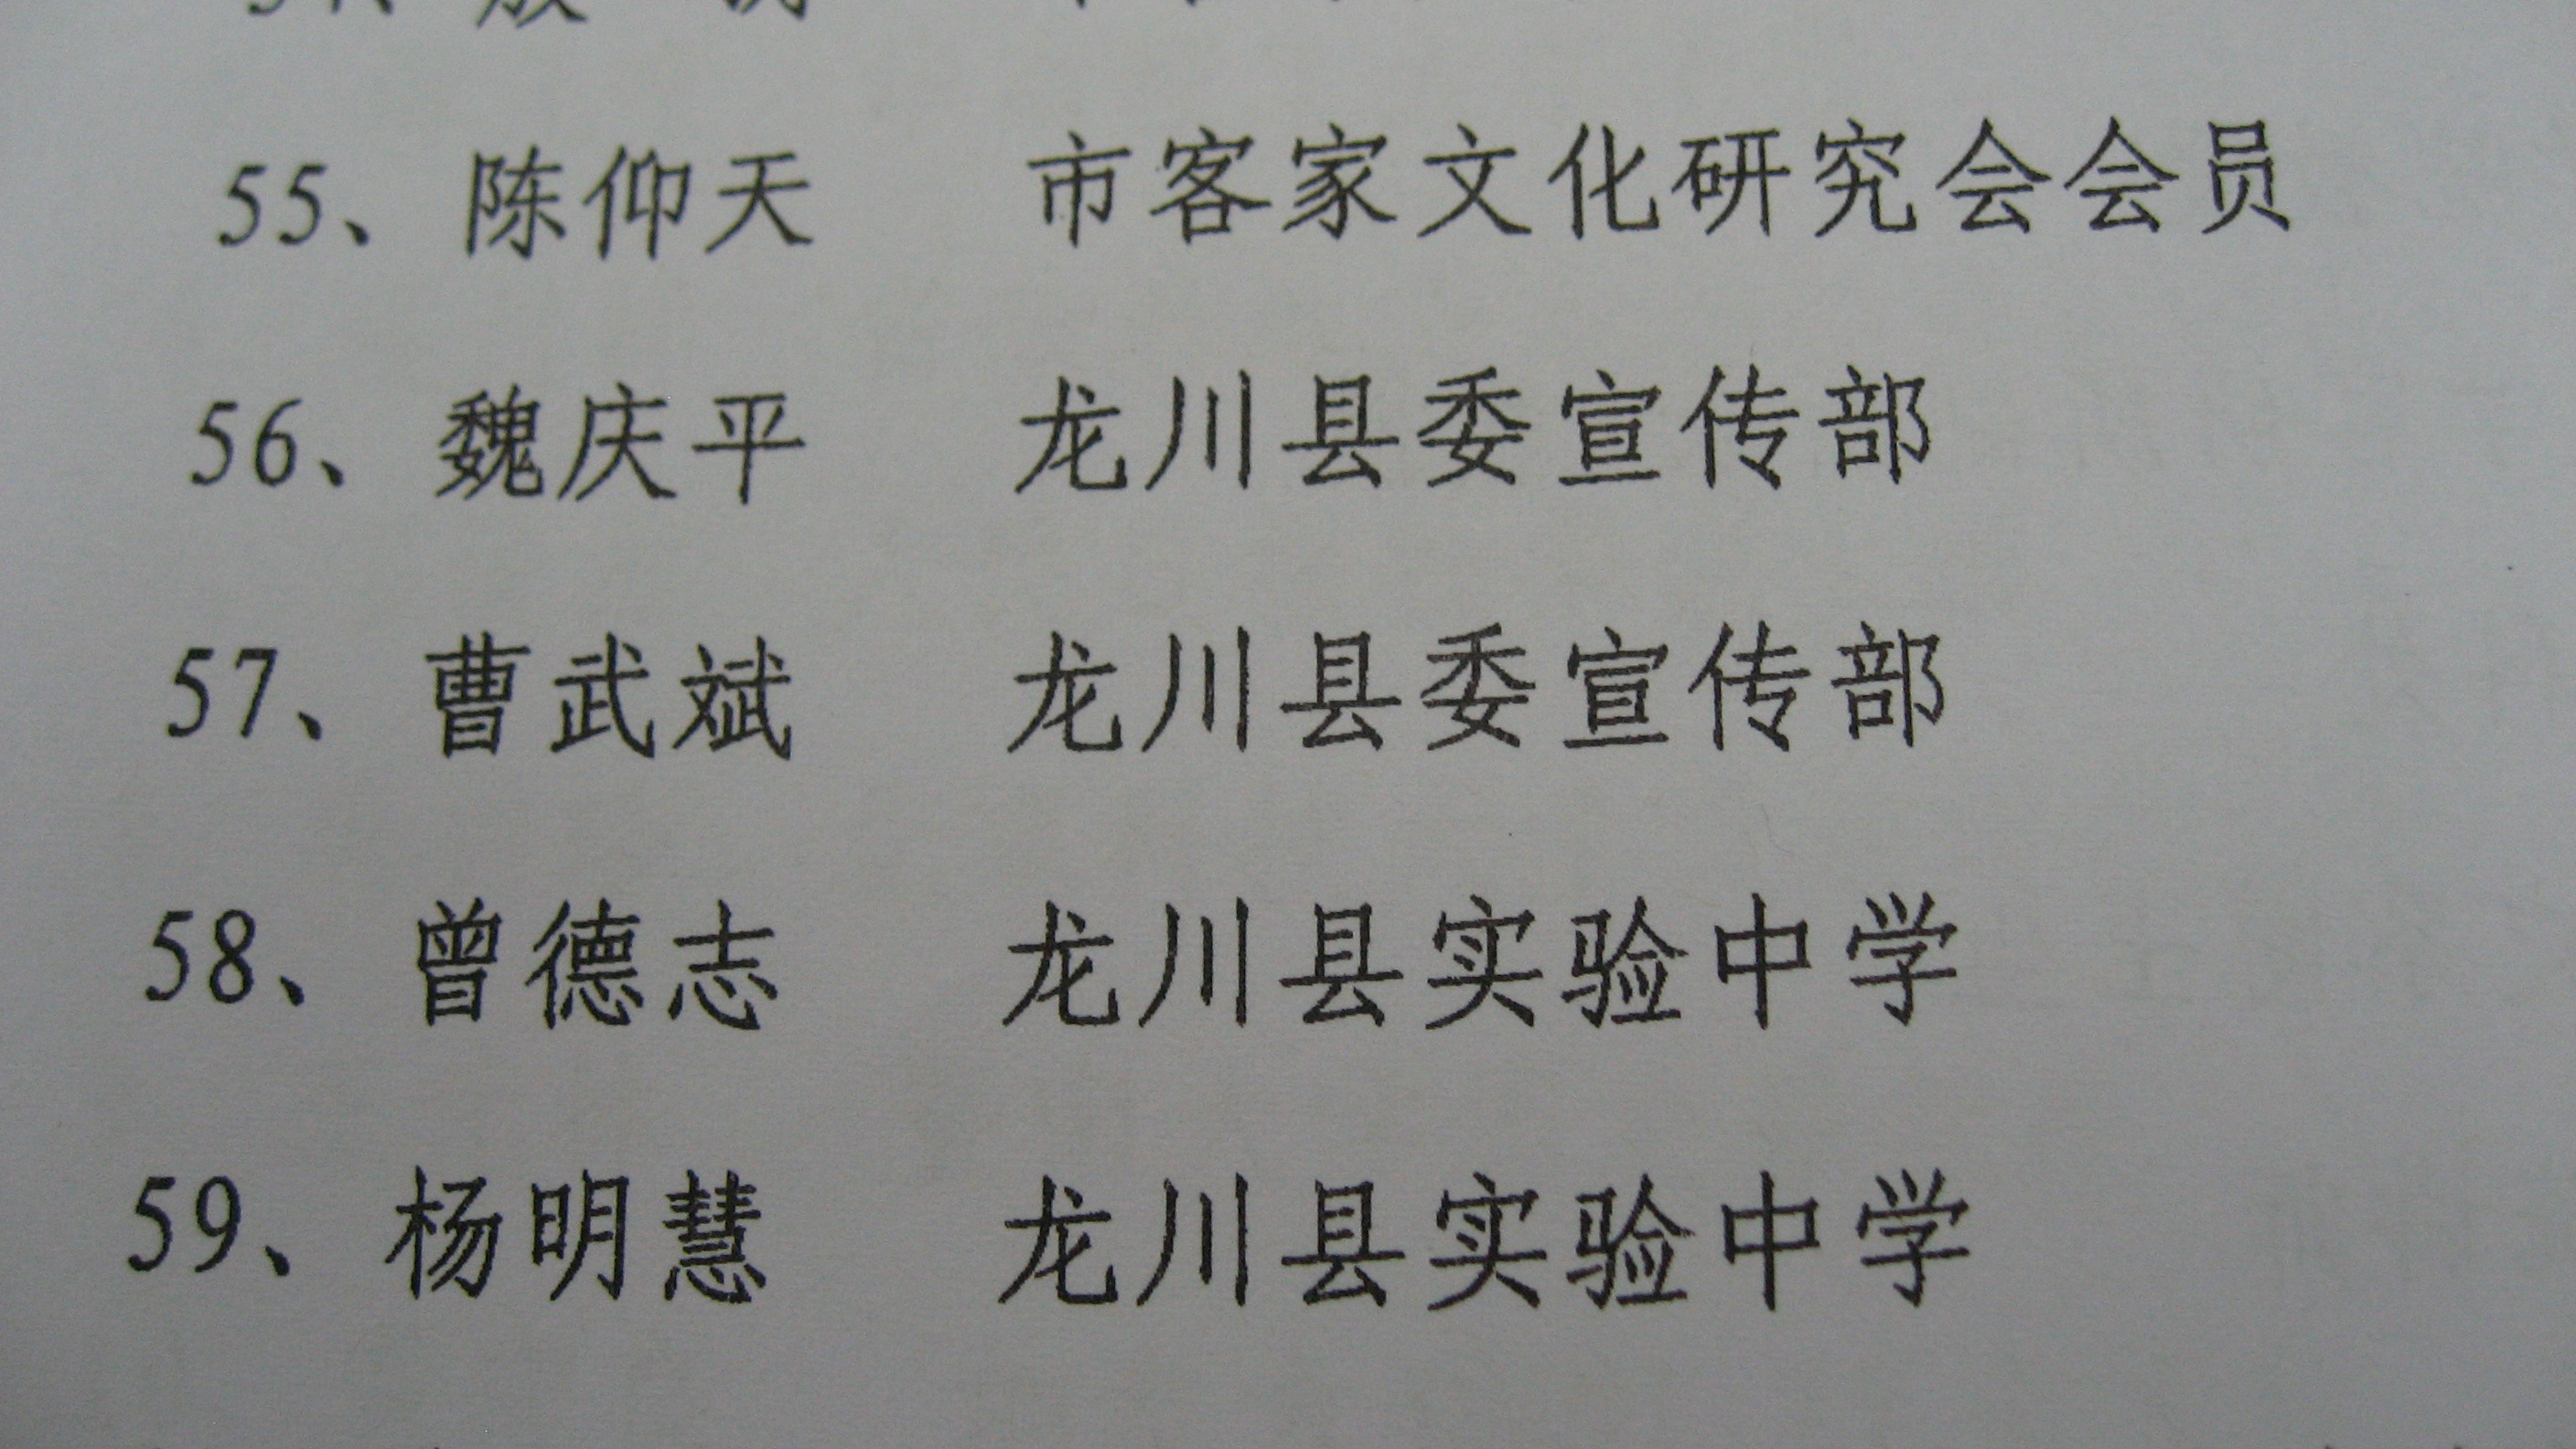 55、陈仰天 市客家文化研究会会员
56、魏庆平 龙川县委宣传部
57、曹武斌 龙川县委宣传部
58、曾德志 龙川县实验中学
59、杨明慧 龙川县实验中学